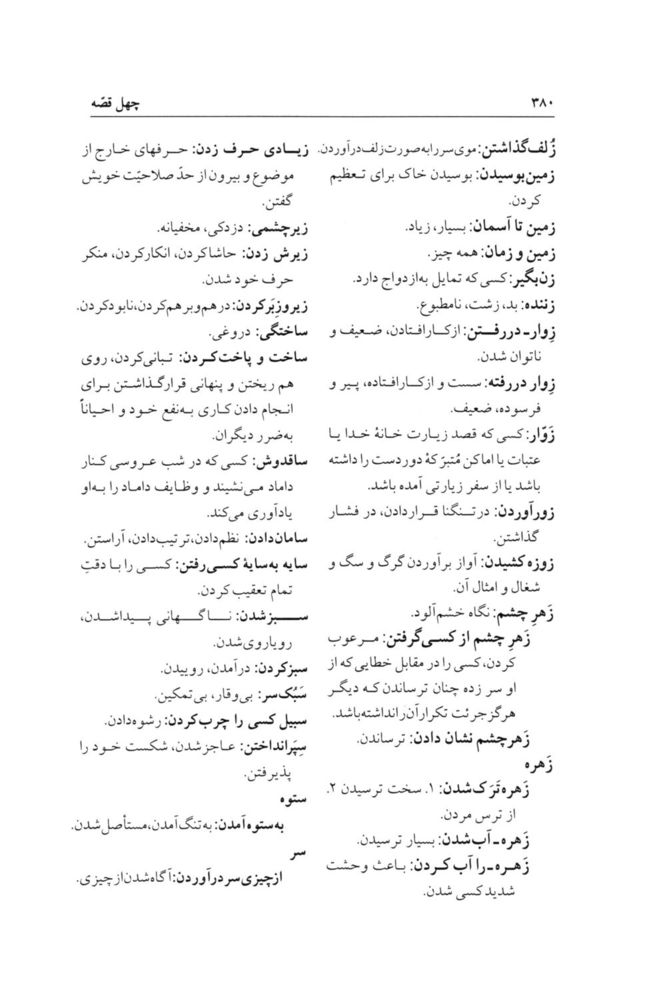 ۳۸۰
چهل قصّه
زُلف‌گذاشتن: موی سر را به صورت زلف درآوردن.
زمین‌بوسیدن: بوسیدن خاک برای تعظیم
کردن.
زمین تا آسمان: بسیار، زیاد.
زمین و زمان: همه چیز.
زن‌بگیر: کسی که تمایل به‌ازدواج دارد.
زننده: بد، زشت، نامطبوع.
زِوار ـ در‌رفـتـن: از‌کـار‌افتادن، ضـعیف و
ناتوان شدن.
زِوار در‌رفته: سست و از‌کـار‌افتاده، پیـر و
فرسوده، ضعیف.
زَوّار: کسی که قصد زیارت خانهٔ خدا یـا
عتبات یا اماکن مُتبرّکهٔ دوردست را داشته
باشد یا از سفر زیارتی آمده باشد.
زورآوردن: در تـنگنا قـرار‌دادن، در فشـار
گذاشتن.
زوزه کشیدن: آواز بر‌آوردن گرگ و سگ و
شغال و امثال آن.
زَهرِ چشم: نگاه خشم‌آلود.
زَهرِ چشم از کسی‌گرفتن: مـرعوب
کردن، کسی را در مقابل خطایی که از
او سر زده چنان ترساندن کـه دیگـر
هرگز جرئت تکرار آن را نداشته باشد.
زَهرچشم نشان دادن: ترساندن.
زَهره
زَهره تَرَک‌شدن: ۱. سخت ترسیدن ۲.
از ترس مردن.
زَهره ـ آب‌شدن: بسیار ترسیدن.
زَهـره ـ را آب کـردن: بـاعث وحشت
شدید کسی شدن.
زیـادی حـرف زدن: حـرفهای خـارج از
موضوع و بیرون از حدّ صلاحیّت خویش
گفتن.
زیرچشمی: دزدکی، مخفیانه.
زیرش زدن: حاشا‌کردن، انکار‌کردن، منکر
حرف خود شدن.
زیروزِبَر‌کردن: درهم و بر هم کردن، نابود کردن.
ساختگی: دروغی.
ساخت و پاخت‌کـردن: تـبانی‌کردن، روی
هم ریختن و پنهانی قرارگـذاشتن بـرای
انـجام دادن کـاری بـه‌نفع خـود و احیاناً
به‌ضرر دیگران.
ساقدوش: کسی که در شب عـروسی کنار
داماد می‌نشیند و وظایف دامـاد را بـه‌او
یادآوری می‌کند.
سامان‌دادن: نظم‌دادن، ترتیب‌دادن، آراستن.
سایه به‌سایهٔ کسی‌رفتن: کسـی را بـا دقتِ
تمام تعقیب کردن.
سـبـز شدن: نـاگـهـانی پـیـداشـدن،
رویاروی‌شدن.
سبزکردن: درآمدن، روییدن.
سَبُک‌سر: بی‌وقار، بی‌تمکین.
سبیل کسی را چرب‌کردن: رشوه‌دادن.
سِپَرانداختن: عـاجز‌شدن، شکست خـود را
پذیرفتن.
ستوه
به‌ستوه آمدن: به‌تنگ آمدن، مستأصل شدن.
سر
از چیزی سر در‌آوردن: آگاه شدن از چیزی.